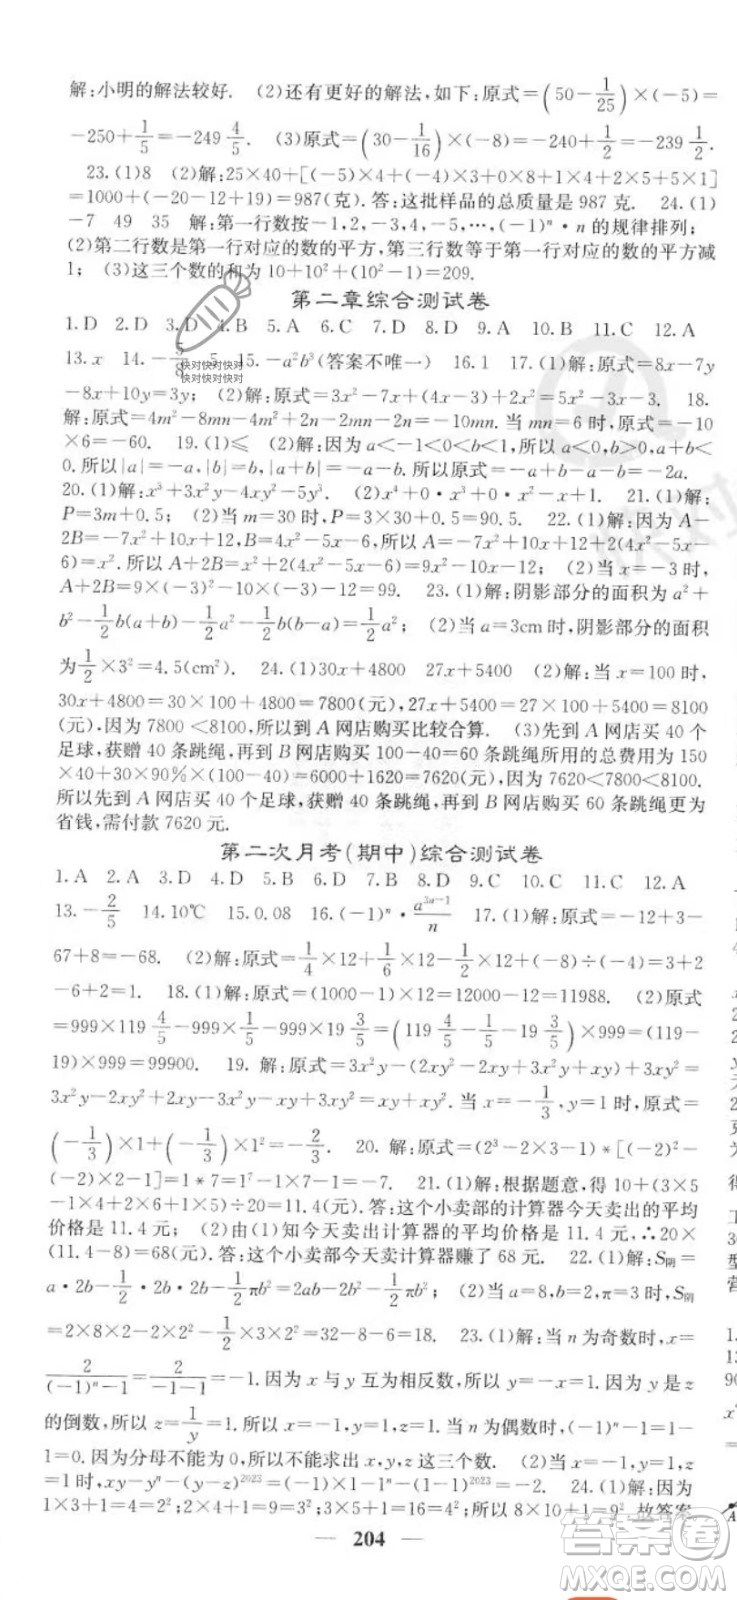 解:小明的解法较好. (2)还有更好的解法,如下:原式=(50-1/25)×(-5)=
-250+1/5=-249 4/5. (3)原式=(30-1/16)×(-8)=-240+1/2=-239 1/2.
23.(1)8 (2)解:25×40+[(-5)×4+(-4)×3+0×8+1×4+2×5+5×1]
=1000+(-20-12+19)=987(克).答:这批样品的总质量是 987 克. 24.(1)
-7 49 35 解:第一行数按-1,2,-3,4,-5,…,(-1)ⁿ·n 的规律排列;
(2)第二行数是第一行对应的数的平方,第三行数等于第一行对应的数的平方减
1; (3)这三个数的和为 10+10²+(10²-1)=209.
第二章综合测试卷
1.D 2.D 3.D 4.B 5.A 6.C 7.D 8.C 9.D 10.B 11.C 12.A
13.x 14.- 5 15.-a²b³(答案不唯一) 16.1 17.(1)解:原式=8x-7y
快对快对快对
快对快对快对
-8x+10y=3y; (2)解:原式=3x²-7x+(4x-3)+2x²=5x²-3x-3. 18.
解:原式=4m²-8mn-4m²+2n-2mn-2n=-10mn.当 mn=6 时,原式=-10
×6=-60. 19.(1)≤ (2)解:因为 a<-1<0<b<1,所以 a<0,b>0,a+b<
0.所以|a|=-a,|b|=b,|a+b|=-a-b.所以原式=-a+b-a-b=-2a.
20.(1)解:x³+3x²y-4xy²-5y³. (2)x⁴+0·x³+0·x²-x+1. 21.(1)解:
P=3m+0.5; (2)当 m=30 时,P=3×30+0.5=90.5. 22.(1)解:因为 A-
2B=-7x²+10x+12,B=4x²-5x-6,所以 A=-7x²+10x+12+2(4x²-5x-
6)=x².所以 A+2B=x²+2(4x²-5x-6)=9x²-10x-12; (2)当 x=-3 时,
A+2B=9×(-3)²-10×(-3)-12=99. 23.(1)解:阴影部分的面积为 a²+
b²-1/2b(a+b)-1/2a²-1/2b(b-a)=1/2a²; (2)当 a=3cm时,阴影部分的面积
为1/2×3²=4.5(cm²). 24.(1)30x+4800 27x+5400 (2)当 x=100 时,
30x+4800=30×100+4800=7800(元),27x+5400=27×100+5400=8100
(元),因为 7800<8100,所以到 A 网店购买比较合算. (3)先到 A 网店买 40 个
足球,获赠 40 条跳绳,再到 B 网店购买 100-40=60 条跳绳所用的总费用为 150
×40+30×60×90%=6000+1620=7620(元),因为 7620<7800<8100.
所以先到 A 网店买 40 个足球,获赠 40 条跳绳,再到 B 网店购买 60 条跳绳更为
省钱,需付款 7620 元.
第二次月考(期中)综合测试卷
1.A 2.D 3.D 4.D 5.D 6.D 7.B 8.C 9.D 10.D 11.C 12.A
13.-2/5 14.10℃ 15.0.08 16.(-1)ⁿ·a³ⁿ⁻¹/n 17.(1)解:原式=-12+3-
67+8=-68. (2)解:原式=1/4×12+1/6×12-1/2×12+(-8)÷(-4)=3+2
-6+2=1. 18.(1)解:原式=(1000-1)×12=12000-12=11988. (2)原式
=999×119 4/5-999×1/5-999×19 3/5=(119 4/5-1/5-19 3/5)×999=(119-
19)×999=99900. 19. 解:原式=3x²y-(2xy²-2xy+3x²y+xy)+3xy²=
3x²y-2xy²+2xy-3x²y-xy+3xy²=xy+xy².当 x=-1/3,y=1 时,原式=
(-1/3)×1+(-1/3)×1²=-2/3. 20. 解:原式=(2³-2×3-1)*[(-2)²-
(-2)×2-1]=1*7=1⁷-1×7-1=-7. 21.(1)解:根据题意,得 10+(3×5
-1×4+2×2+6×1+5×1)÷20=11.4(元).答:这个小卖部的计算器今天卖出的平均
价格是 11.4 元; (2)由(1)知今天卖出计算器的平均价格是 11.4 元,∴20×
(11.4-8)=68(元).答:这个小卖部今天卖计算器赚了 68 元. 22.(1)解:S阴=
a·2b-1/2·2b·2b-1/2πb²=2ab-2b²-1/2πb²; (2)当 a=8,b=2,π=3 时,S阴
=2×8×2-2×2²-1/2×3×2²=32-8-6=18. 23.(1)解:当 n 为奇数时,x=
2/((-1)ⁿ-1)=2/(-1-1)=-1.因为 x 与 y 互为相反数,所以 y=-x=1.因为 z 是 y
的倒数,所以 z=1/y=1.所以 x=-1,y=1,z=1.当 n 为偶数时,(-1)ⁿ-1=1-
1=0.因为分母不能为 0,所以不能求出 x 这三个数. (2)当 x=-1,y=1,z=
1 时,xy-yⁿ-(y-z)²⁰²³=(-1)×1-(-1)ⁿ-(1-1)²⁰²³=-2. 24.(1)解:因为
1×3+1=4=2²;2×4+1=9=3²;3×5+1=16=4²,所以 8×10+1=9².故答案
204